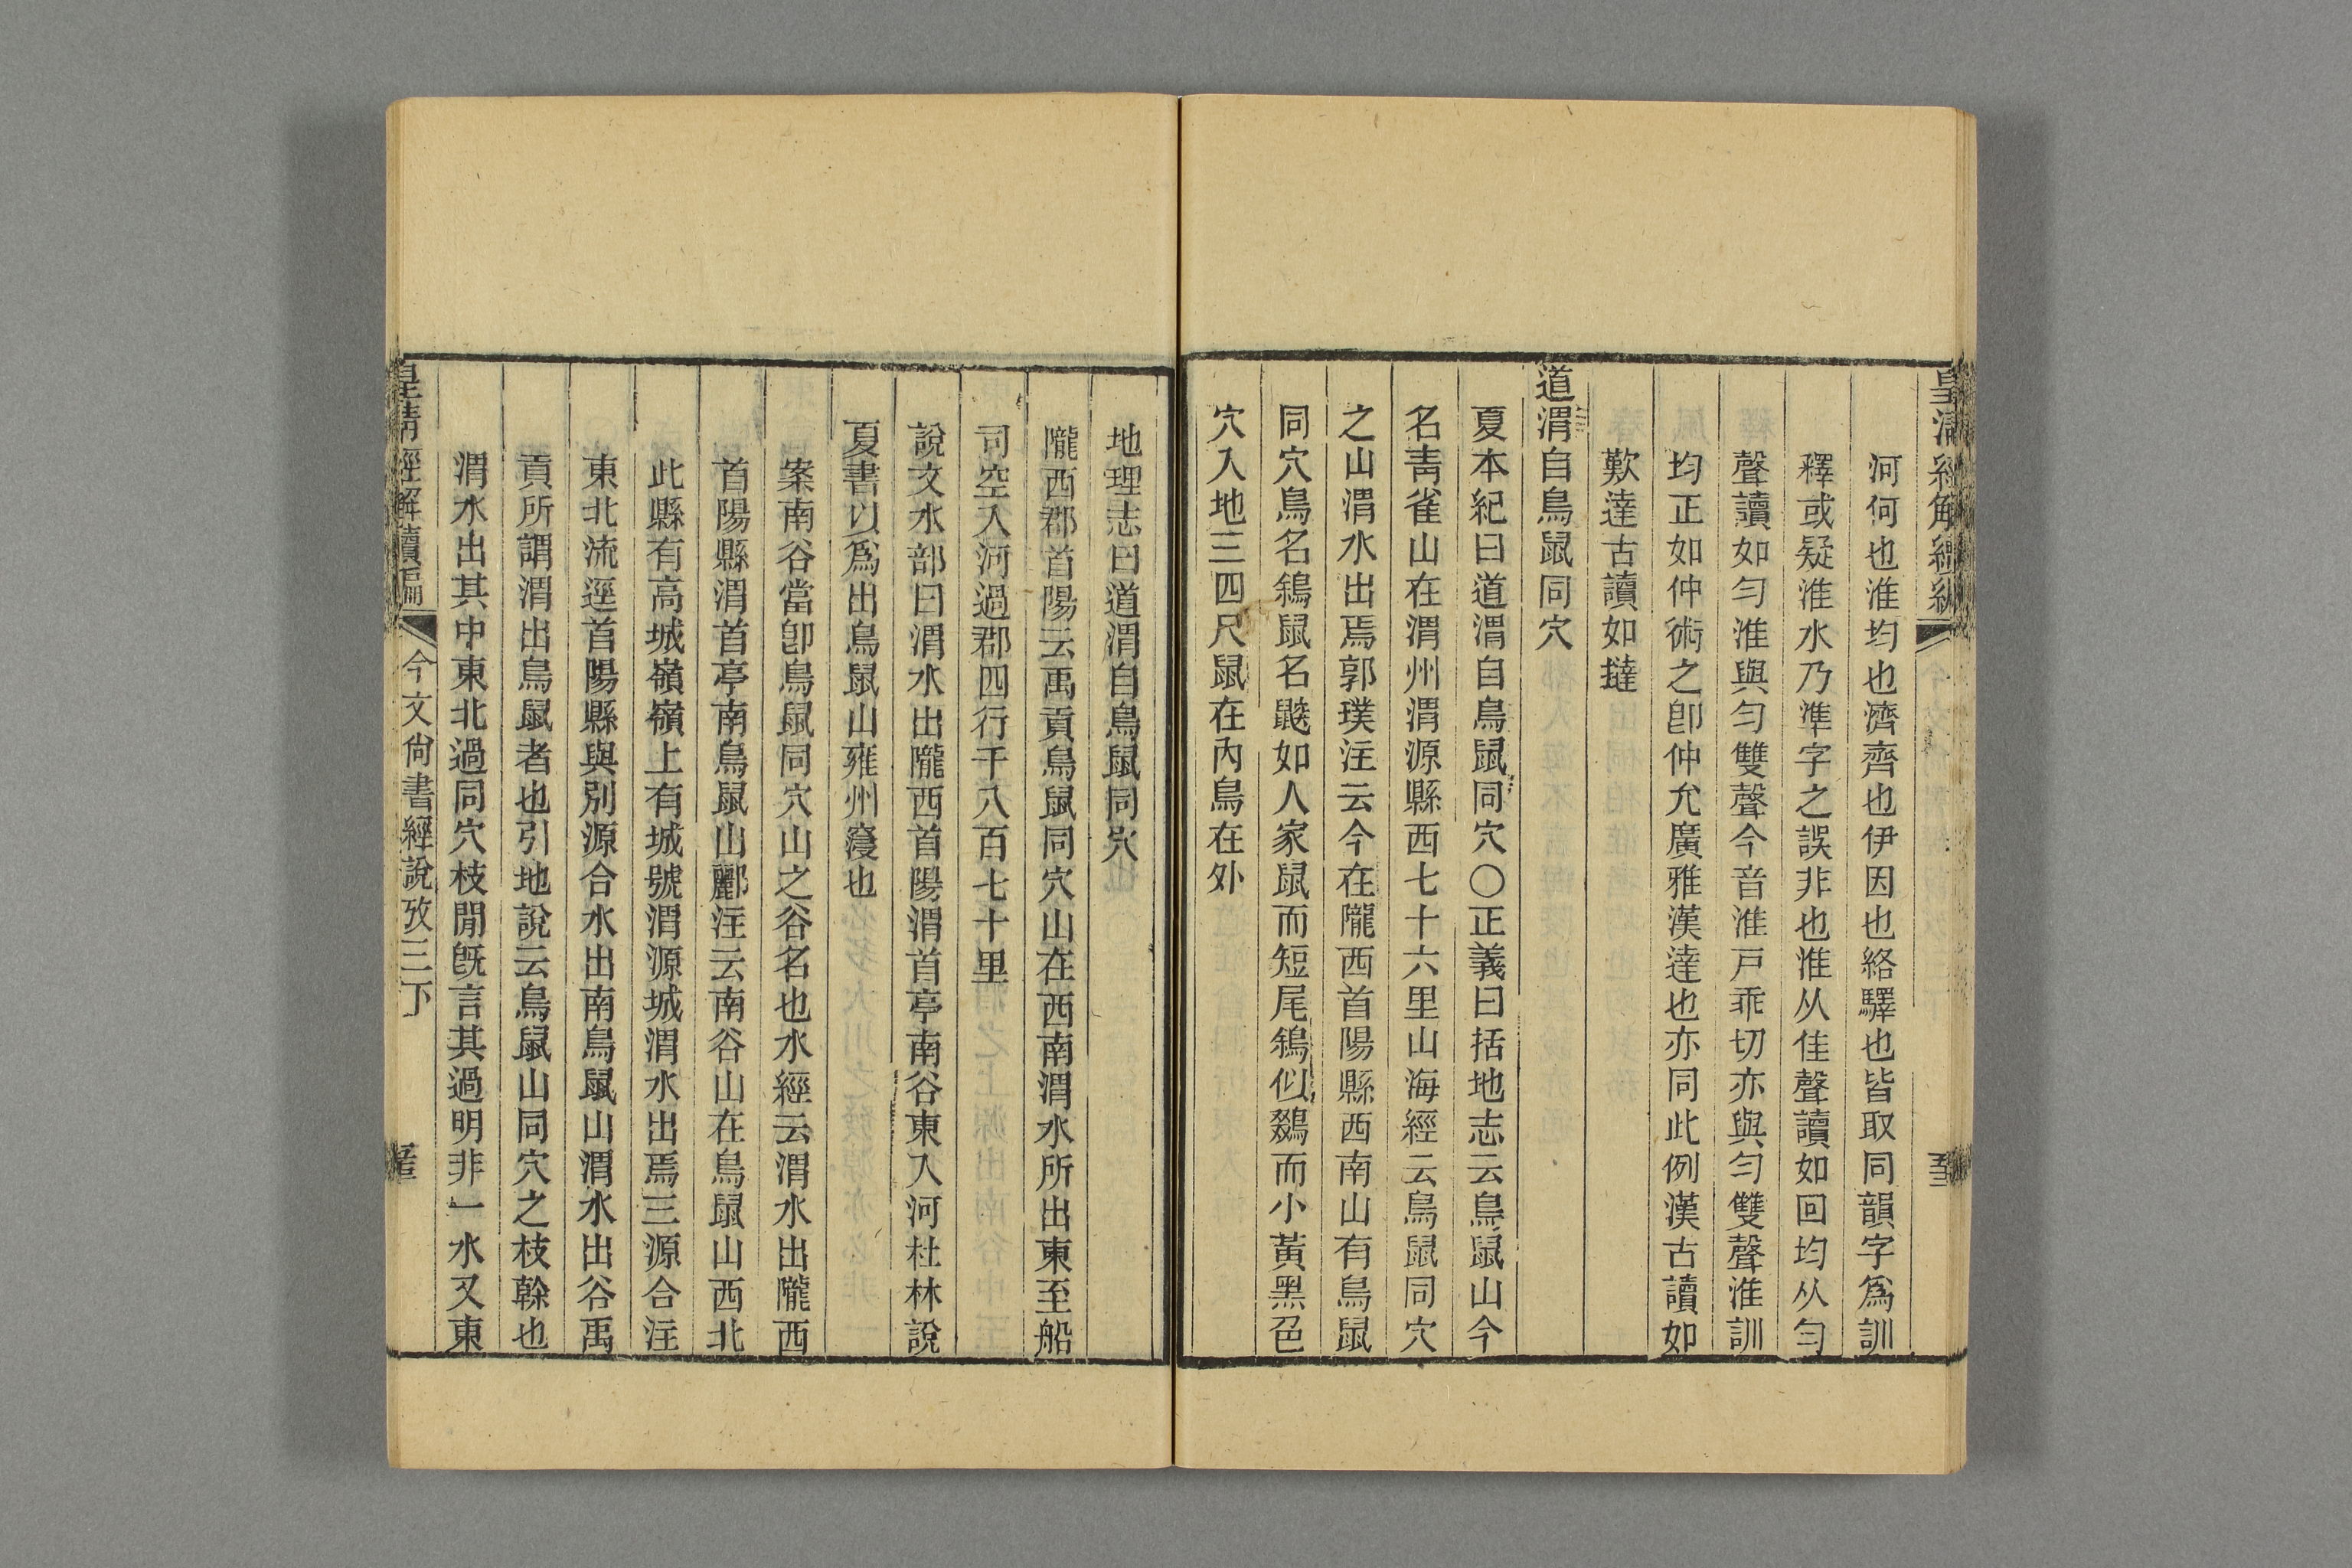 皇清經解續編
河何也淮均也濟齊也伊因也絡驛也皆取同韻字爲訓
釋或疑淮水乃準字之誤非也淮从隹聲讀如回均从勻
聲讀如勻淮與勻雙聲今音淮戸乖切亦與勻雙聲淮訓
均正如仲術之卽仲允廣雅漢達也亦同此例漢古讀如
歎達古讀如撻
道渭自鳥鼠同穴
夏本紀曰道渭自鳥鼠同穴〇正義曰括地志云鳥鼠山今
名靑雀山在渭州渭源縣西七十六里山海經云鳥鼠同穴
之山渭水出焉郭璞注云今在隴西首陽縣西南山有鳥鼠
同穴鳥名鵌鼠名鼵如人家鼠而短尾鵌似鵽而小黃黑色
穴入地三四尺鼠在內鳥在外
地理志曰道渭自鳥鼠同穴
隴西郡首陽云禹貢鳥鼠同穴山在西南渭水所出東至船
司空入河過郡四行千八百七十里
說文水部曰渭水出隴西首陽渭首亭南谷東入河杜林說
夏書以爲出鳥鼠山雍州𡫳也
案南谷當卽鳥鼠同穴山之谷名也水經云渭水出隴西
首陽縣渭首亭南鳥鼠山酈注云南谷山在鳥鼠山西北
此縣有高城嶺嶺上有城號渭源城渭水出焉三源合注
東北流逕首陽縣與別源合水出南鳥鼠山渭水出谷禹
貢所謂渭出鳥鼠者也引地說云鳥鼠山同穴之枝榦也
渭水出其中東北過同穴枝閒旣言其過明非一水又東
皇清經解續編
今文尙書經說攷三下